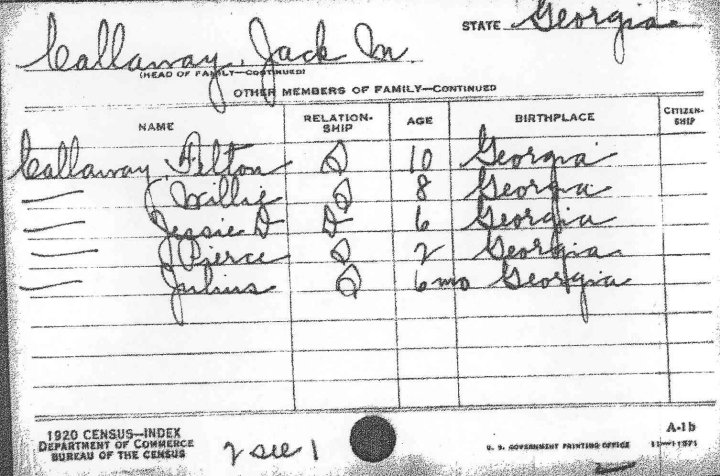 STATE Georgia.
Callaway, Jack M
(HEAD OF FAMILY—CONTINUED)
OTHER MEMBERS OF FAMILY—CONTINUED
NAME RELATION-SHIP AGE BIRTHPLACE CITIZEN-SHIP
Callaway, Felton S 10 Georgia
— Willie S 8 Georgia
— Jessie D D 6 Georgia
— Pierce S 2 Georgia
— Julius S 6 mo Georgia
1920 CENSUS—INDEX
DEPARTMENT OF COMMERCE
BUREAU OF THE CENSUS
2 see 1
U. S. GOVERNMENT PRINTING OFFICE
A-1b